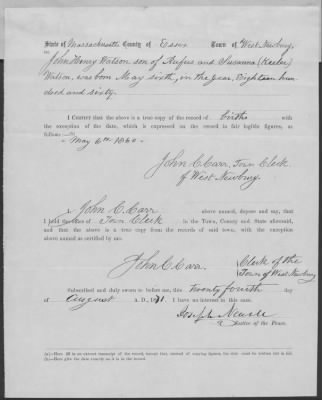 State of Massachusetts County of Essex Town of West Newbury,
John Henry Watson son of Rufus and Susanna (Keeler)
Watson, was born May sixth, in the year, Eighteen hun
dred and sixty.
I CERTIFY that the above is a true copy of the record of births with
the exception of the date, which is expressed on the record in fair legible figures, as
follows:—
"May 6th 1860"
John C. Carr, Town Clerk
of West Newbury.
I, John C. Carr above named, depose and say, that
I hold the office of Town Clerk in the Town, County and State aforesaid,
and that the above is a true copy from the records of said town, with the exception
above named as certified by me.
John C. Carr. Clerk of the
Town of West Newbury
Subscribed and duly sworn to before me, this twenty fourth day
of August A. D., 1871. I have no interest in this case.
Joseph
Justice of the Peace.
(a)—Here fill in an correct transcript of the record, except that, instead of copying figures, the date must be written out in full.
(b)—Here give the date exactly as it is in the record.